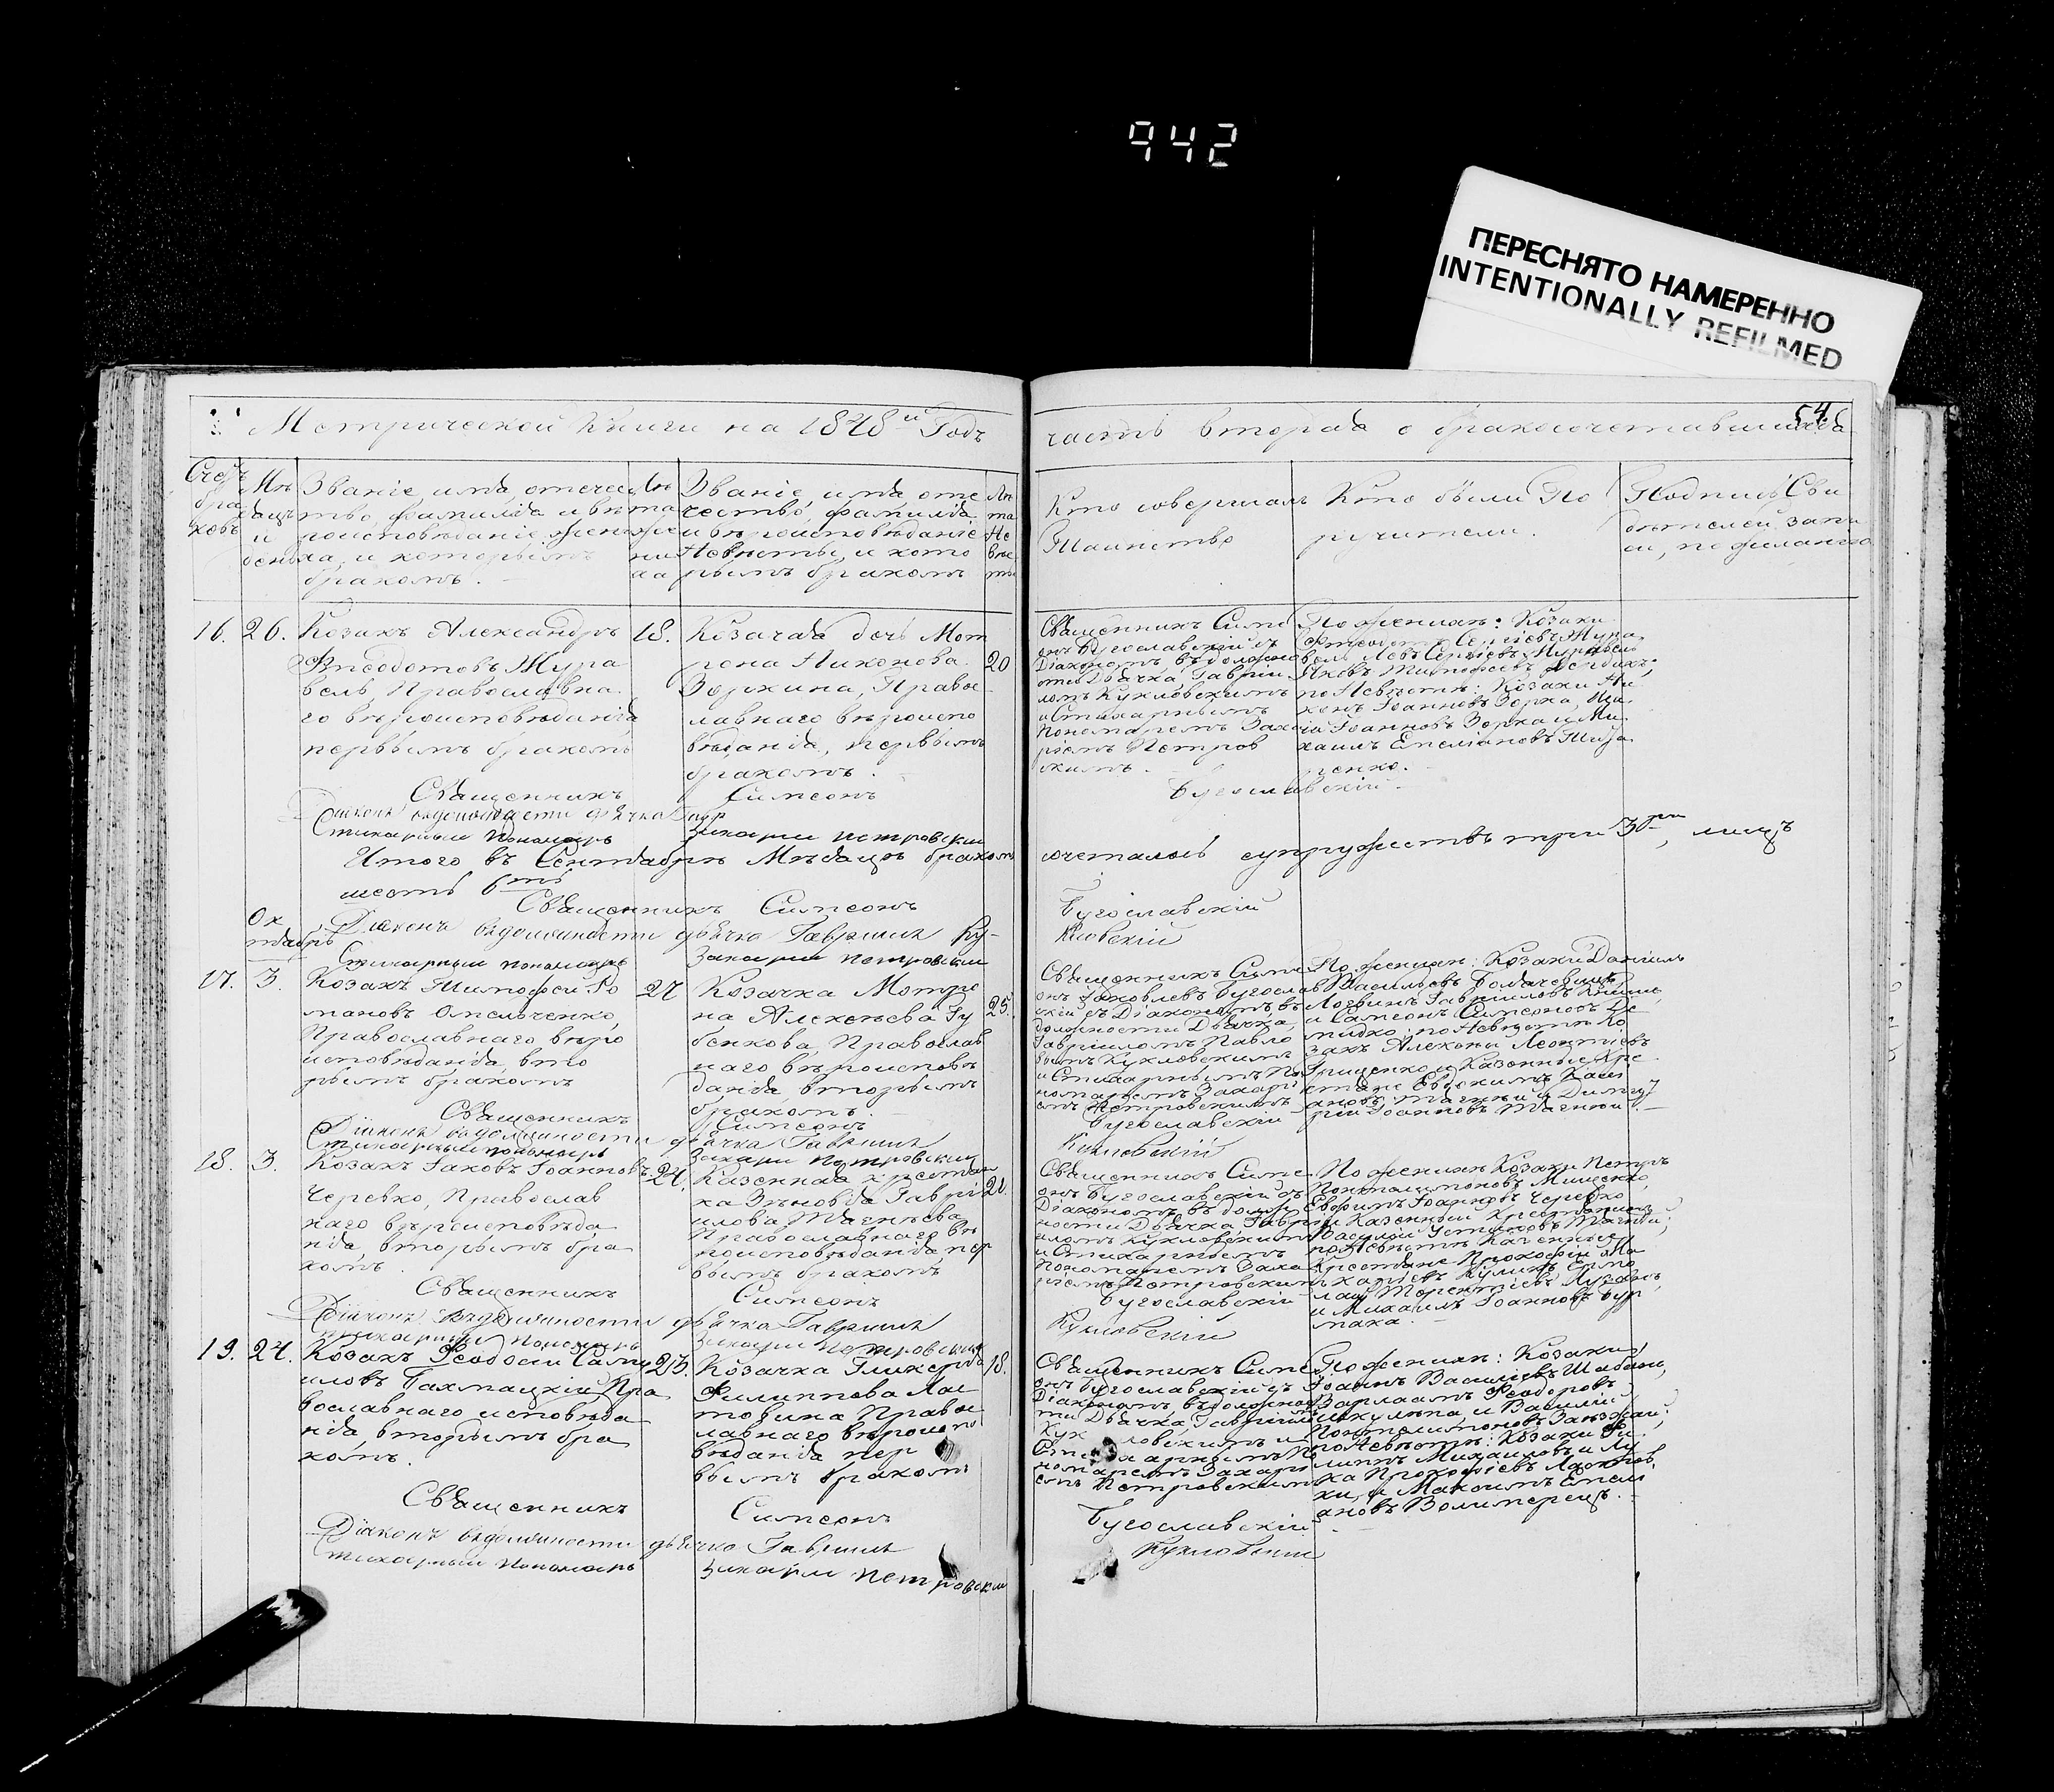 942
ПЕРЕСНЯТО НАМЕРЕННО
INTENTIONALLY REFILMED
54.
Метрической Книги на 1848й Годъ
часть вторая о бракосочетавшихся
Счетъ
бра
ковъ
Мѣ
сяцъ
и
день
Званіе, имя, отечес
тво, фамилія и вѣ
роисповѣданіе жени
ха, и которымъ
бракомъ.
Лѣ
та
же
ни
ха
Званіе, имя, оте
чество, фамилія
и вѣроисповѣданіе
Невѣсты, и кото
рымъ бракомъ
Лѣ
та
Не
вѣс
ты
Кто совершалъ
Таинство
Кто были По
ручители.
Подпись Сви
дѣтелей запи
си, по желанію
16. 26.
Козакъ Александръ
Ѳеодотовъ Жура
вель, Православна
го вѣроисповѣданія
первымъ бракомъ
18.
Козачья дочь Мот
рона Никонова
Зоркина, Правос
лавнаго вѣроиспо
вѣданія, первымъ
бракомъ.
20
Священникъ Симе
онъ Бугославскій съ
Діакономъ въ должнос
ти Дьячка, Гавріи
ломъ Кукловскимъ
и Стихарнымъ
Пономаремъ Заха
ріемъ Петров
скимъ.
По женихѣ: Козаки
Ѳеодотъ Сергіевъ Жура
вель Левъ Сергіевъ Журавель
Яковъ Тимофеевъ
по Невѣстѣ: Козаки Ни
конъ Іоанновъ Зорка,
Іоанновъ Зорка и Ми
хаилъ Емеліановъ
ренко.
Священникъ Симеонъ Бугославскій
Діаконъ въ должности дьячка
Стихарный Пономарь Захарій Петровскій
Итого въ Сентябрѣ Мѣсяцѣ бракомъ сочеталось супружествъ три 3ри, лицъ
шесть 6ть
Священникъ Симеонъ Бугославскій
Діаконъ въ должности дьячка Гавріилъ Ку-
кловскій
Стихарный пономарь Захарій Петровскій
Ок
тябрь
17. 3.
Козакъ Тимофей Ро
мановъ Омельченко,
Православнаго вѣро
исповѣданія, вто
рымъ бракомъ
27
Козачка Мотро
на Алексѣева Гу
бенкова, Православ
наго вѣроисповѣ
данія, вторымъ
бракомъ.
25.
Священникъ Симе
онъ Яковлевъ Бугослав
скій съ Діакономъ въ
должности Дьячка,
Гавріиломъ Павло
вымъ Кукловскимъ
и Стихарнымъ По
номаремъ Захарі
емъ Петровскимъ
По женихѣ: Козаки Даніилъ
Васильевъ
Логвинъ Гавріиловъ
и Самсонъ Симеоновъ Де
мидко; по Невѣстѣ Ко
закъ Алексѣй Леонтіевъ
Грищенко и Казенные Кре
стьяне Евдокимъ
и Димит
рій Іоанновъ
Священникъ Симеонъ Бугославскій
Діаконъ въ должности дьячка Гавріилъ Кукловскій
Стихарный пономарь Захарій Петровскій
18. 3.
Козакъ Іаковъ Іоанновъ
Черевко, Православ
наго вѣроисповѣда
нія, вторымъ бра
комъ.
24.
Казенная крестьян
ка Зѣновія Гаврі
илова
Православнаго вѣ
роисповѣданія, пер
вымъ бракомъ
21.
Священникъ Симе
онъ Бугославскій съ
Діакономъ въ долж
ности Дьячка, Гаврі
иломъ Кукловскимъ
и Стихарнымъ
Пономаремъ Заха
ріемъ Петровскимъ
По женихѣ Козаки Петръ
Понтелимоновъ Мищенко,
Евфимъ Іоанновъ Черевко
и Казенный Крестьянинъ
Василій
по Невѣстѣ Казенные
Крестьяне Прокофій Ма
каріевъ Куликъ, Ермо
лай Терентіевъ
и Михаилъ Іоанновъ Бур
лака.
Священникъ Симеонъ Бугославскій
Діаконъ въ должности дьячка Гавріилъ Кукловскій
Стихарный Пономарь Захарій Петровскій
19. 24.
Козакъ Ѳеодосій Саму
иловъ Бахмацкій, Пра
вославнаго исповѣда
нія, вторымъ бра
комъ.
23.
Козачка Гликерія
Филиппова Лок
товина Правос
лавнаго вѣроиспо
вѣданія пер
вымъ бракомъ
18.
Священникъ Симе
онъ Бугославскій съ
Діакономъ въ должнос
ти Дьячка, Гавріиломъ
Кукловскимъ и
Стихарнымъ По
номаремъ Захарі
емъ Петровскимъ
По женихѣ: Козаки
Іоаннъ Васильевъ
Варлаамъ Ѳеодоровъ
и Василій
Понтелимоновъ
по Невѣстѣ: Козаки Фи
липпъ Михаиловъ и Лу
ка Прокофіевъ
и Максимъ Емели
ановъ
Священникъ Симеонъ Бугославскій
Діаконъ въ должности дьячка Гавріилъ Кукловскій
Стихарный Пономарь Захарій Петровскій